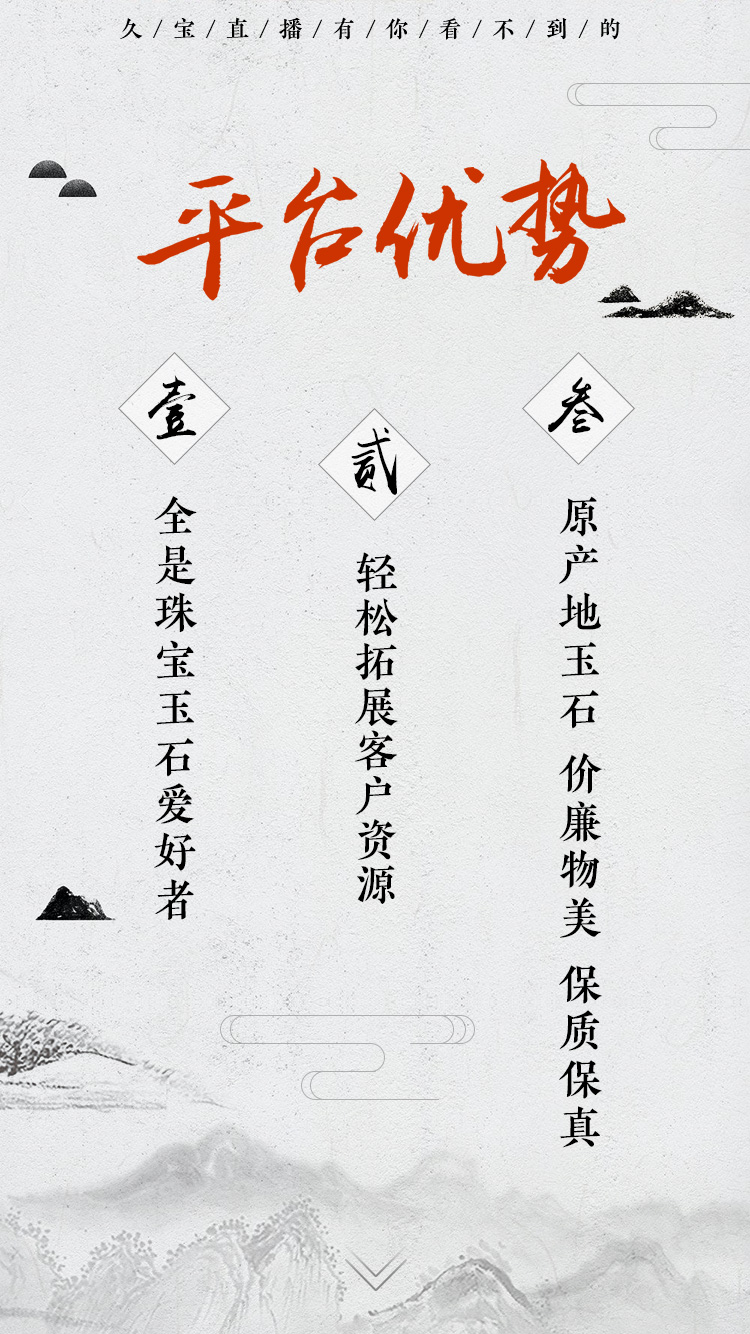 久/宝/直/播/有/你/看/不/到/的
平台优势
壹
全是珠宝玉石爱好者
贰
轻松拓展客户资源
叁
原产地玉石 价廉物美 保质保真